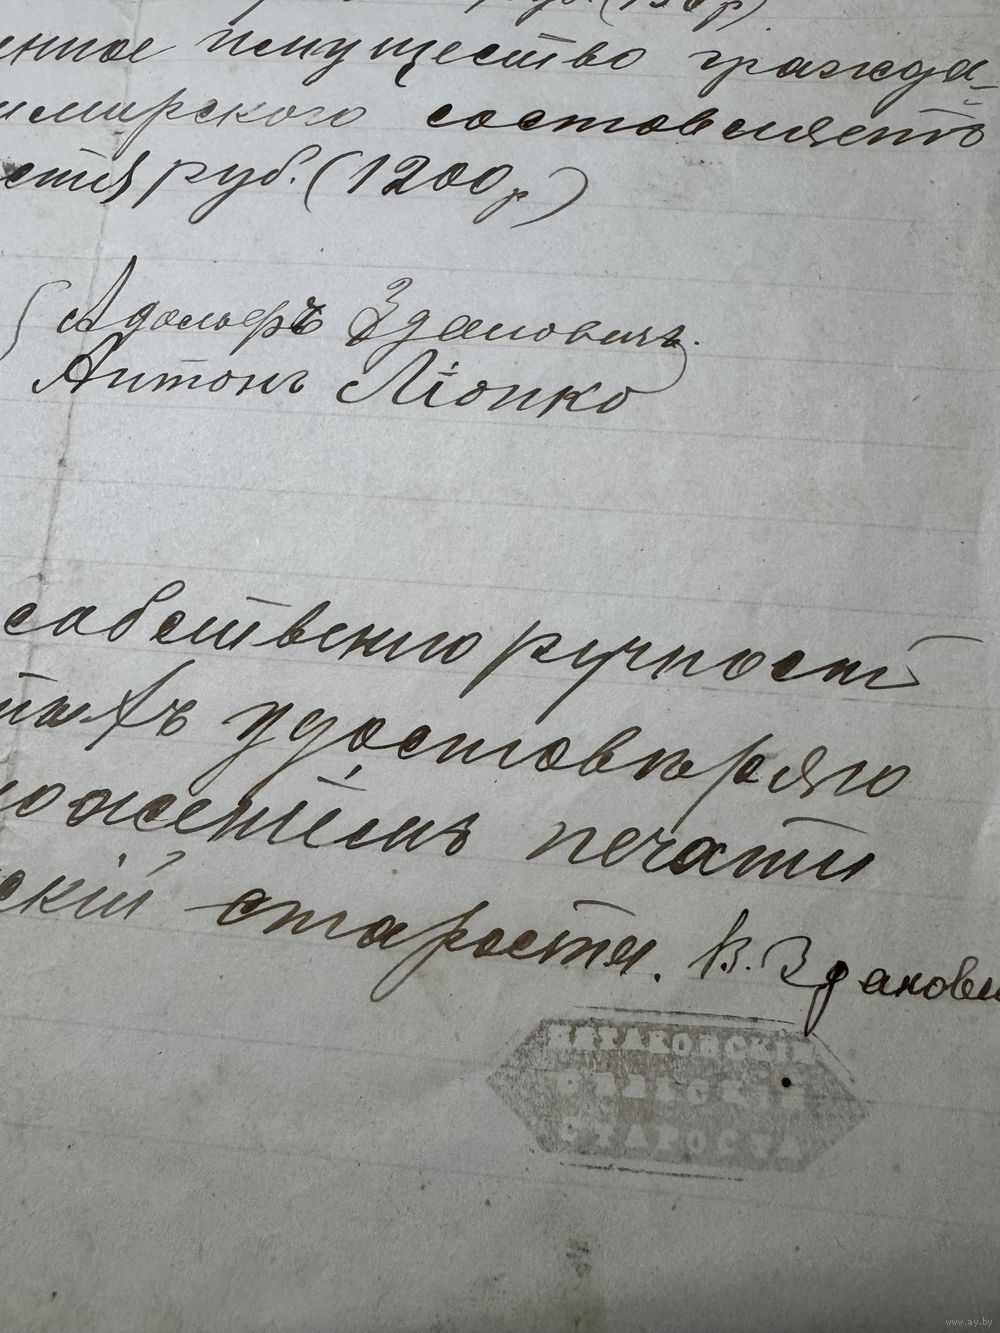 руб. (150 р)
енное имущество гражда-
имирского составляетъ
сти руб. (1200 р)
Адольфъ Здановичъ.
Антонъ Ліопко
собственно ручность
ныхъ удостовѣряю
ложеніемъ печати
скій староста. В. Здановичъ
СЕЛЬСКІЙ
СТАРОСТА
www.ay.by